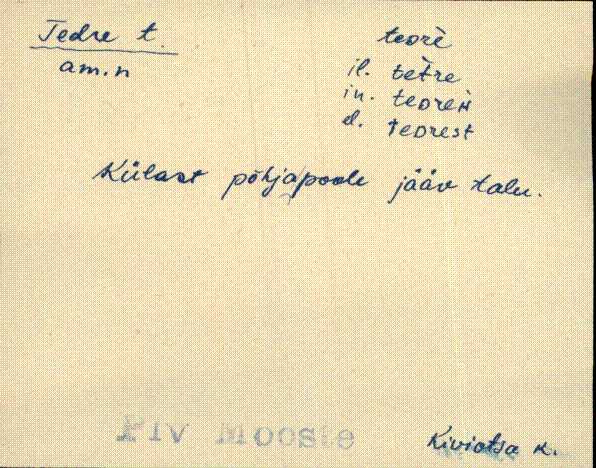 Tedre t.
am. n
teDrè
il. tètre
in. teDreH
el. teDrest
Külast põhjapoole jääv talu.
Plv Mooste
Kiviotsa k.